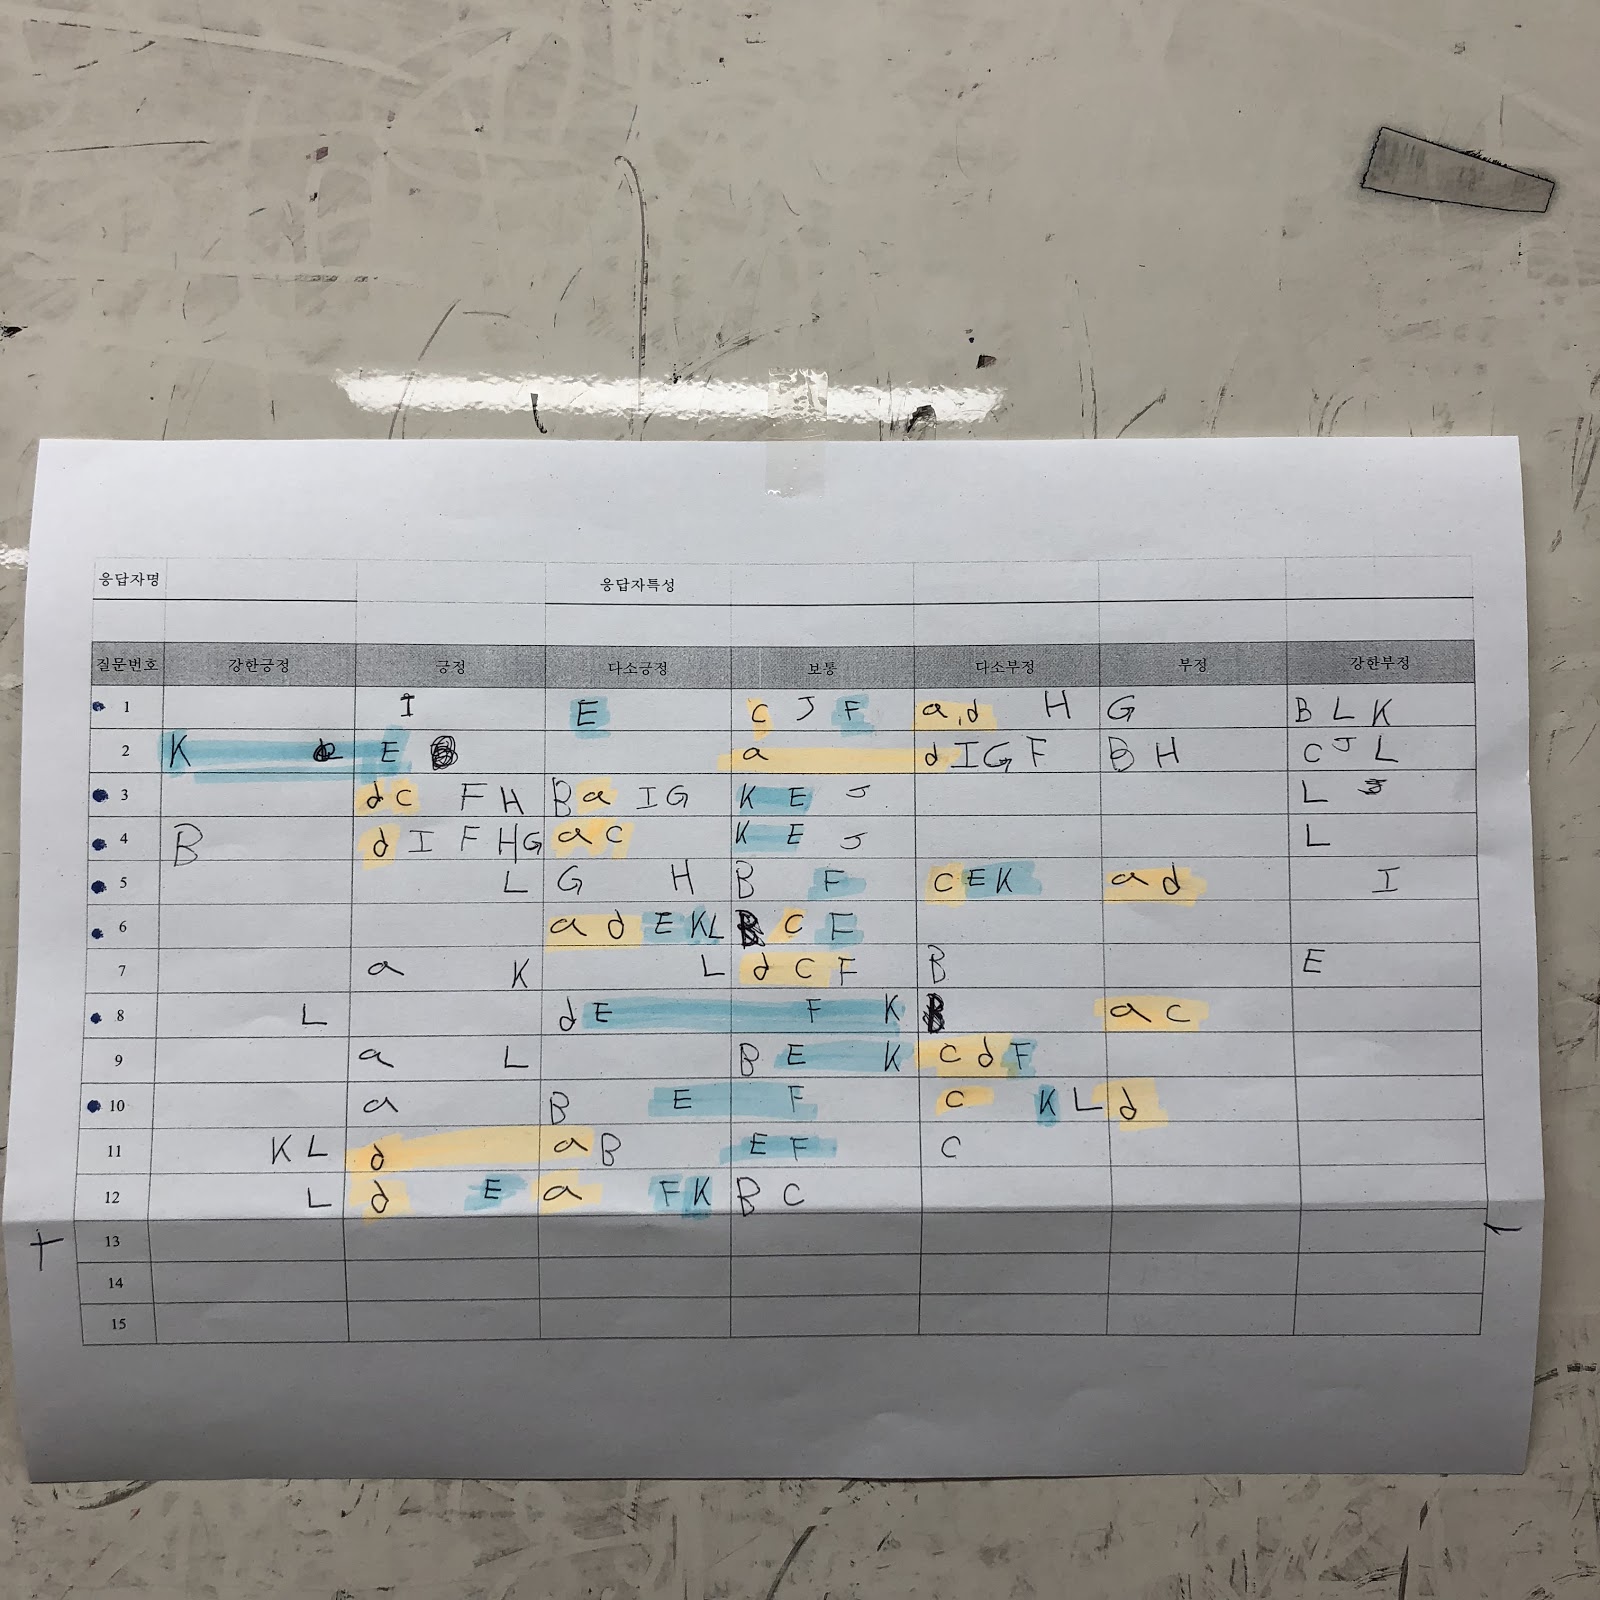 응답자명 응답자특성
질문번호 강한긍정 긍정 다소긍정 보통 다소부정 부정 강한부정
1 I E c J F a, d H G B L K
2 K E a d I G F B H C J L
3 d c F H B a I G K E J L
4 B d I F H G a c K E J L
5 L G H B F c E K a d I
6 a d E K L B C F
7 a K L d C F B E
8 L d E F K B a c
9 a L B E K c d F
10 a B E F c K L d
11 K L d a B E F C
12 L d E a F K B C
13
14
15